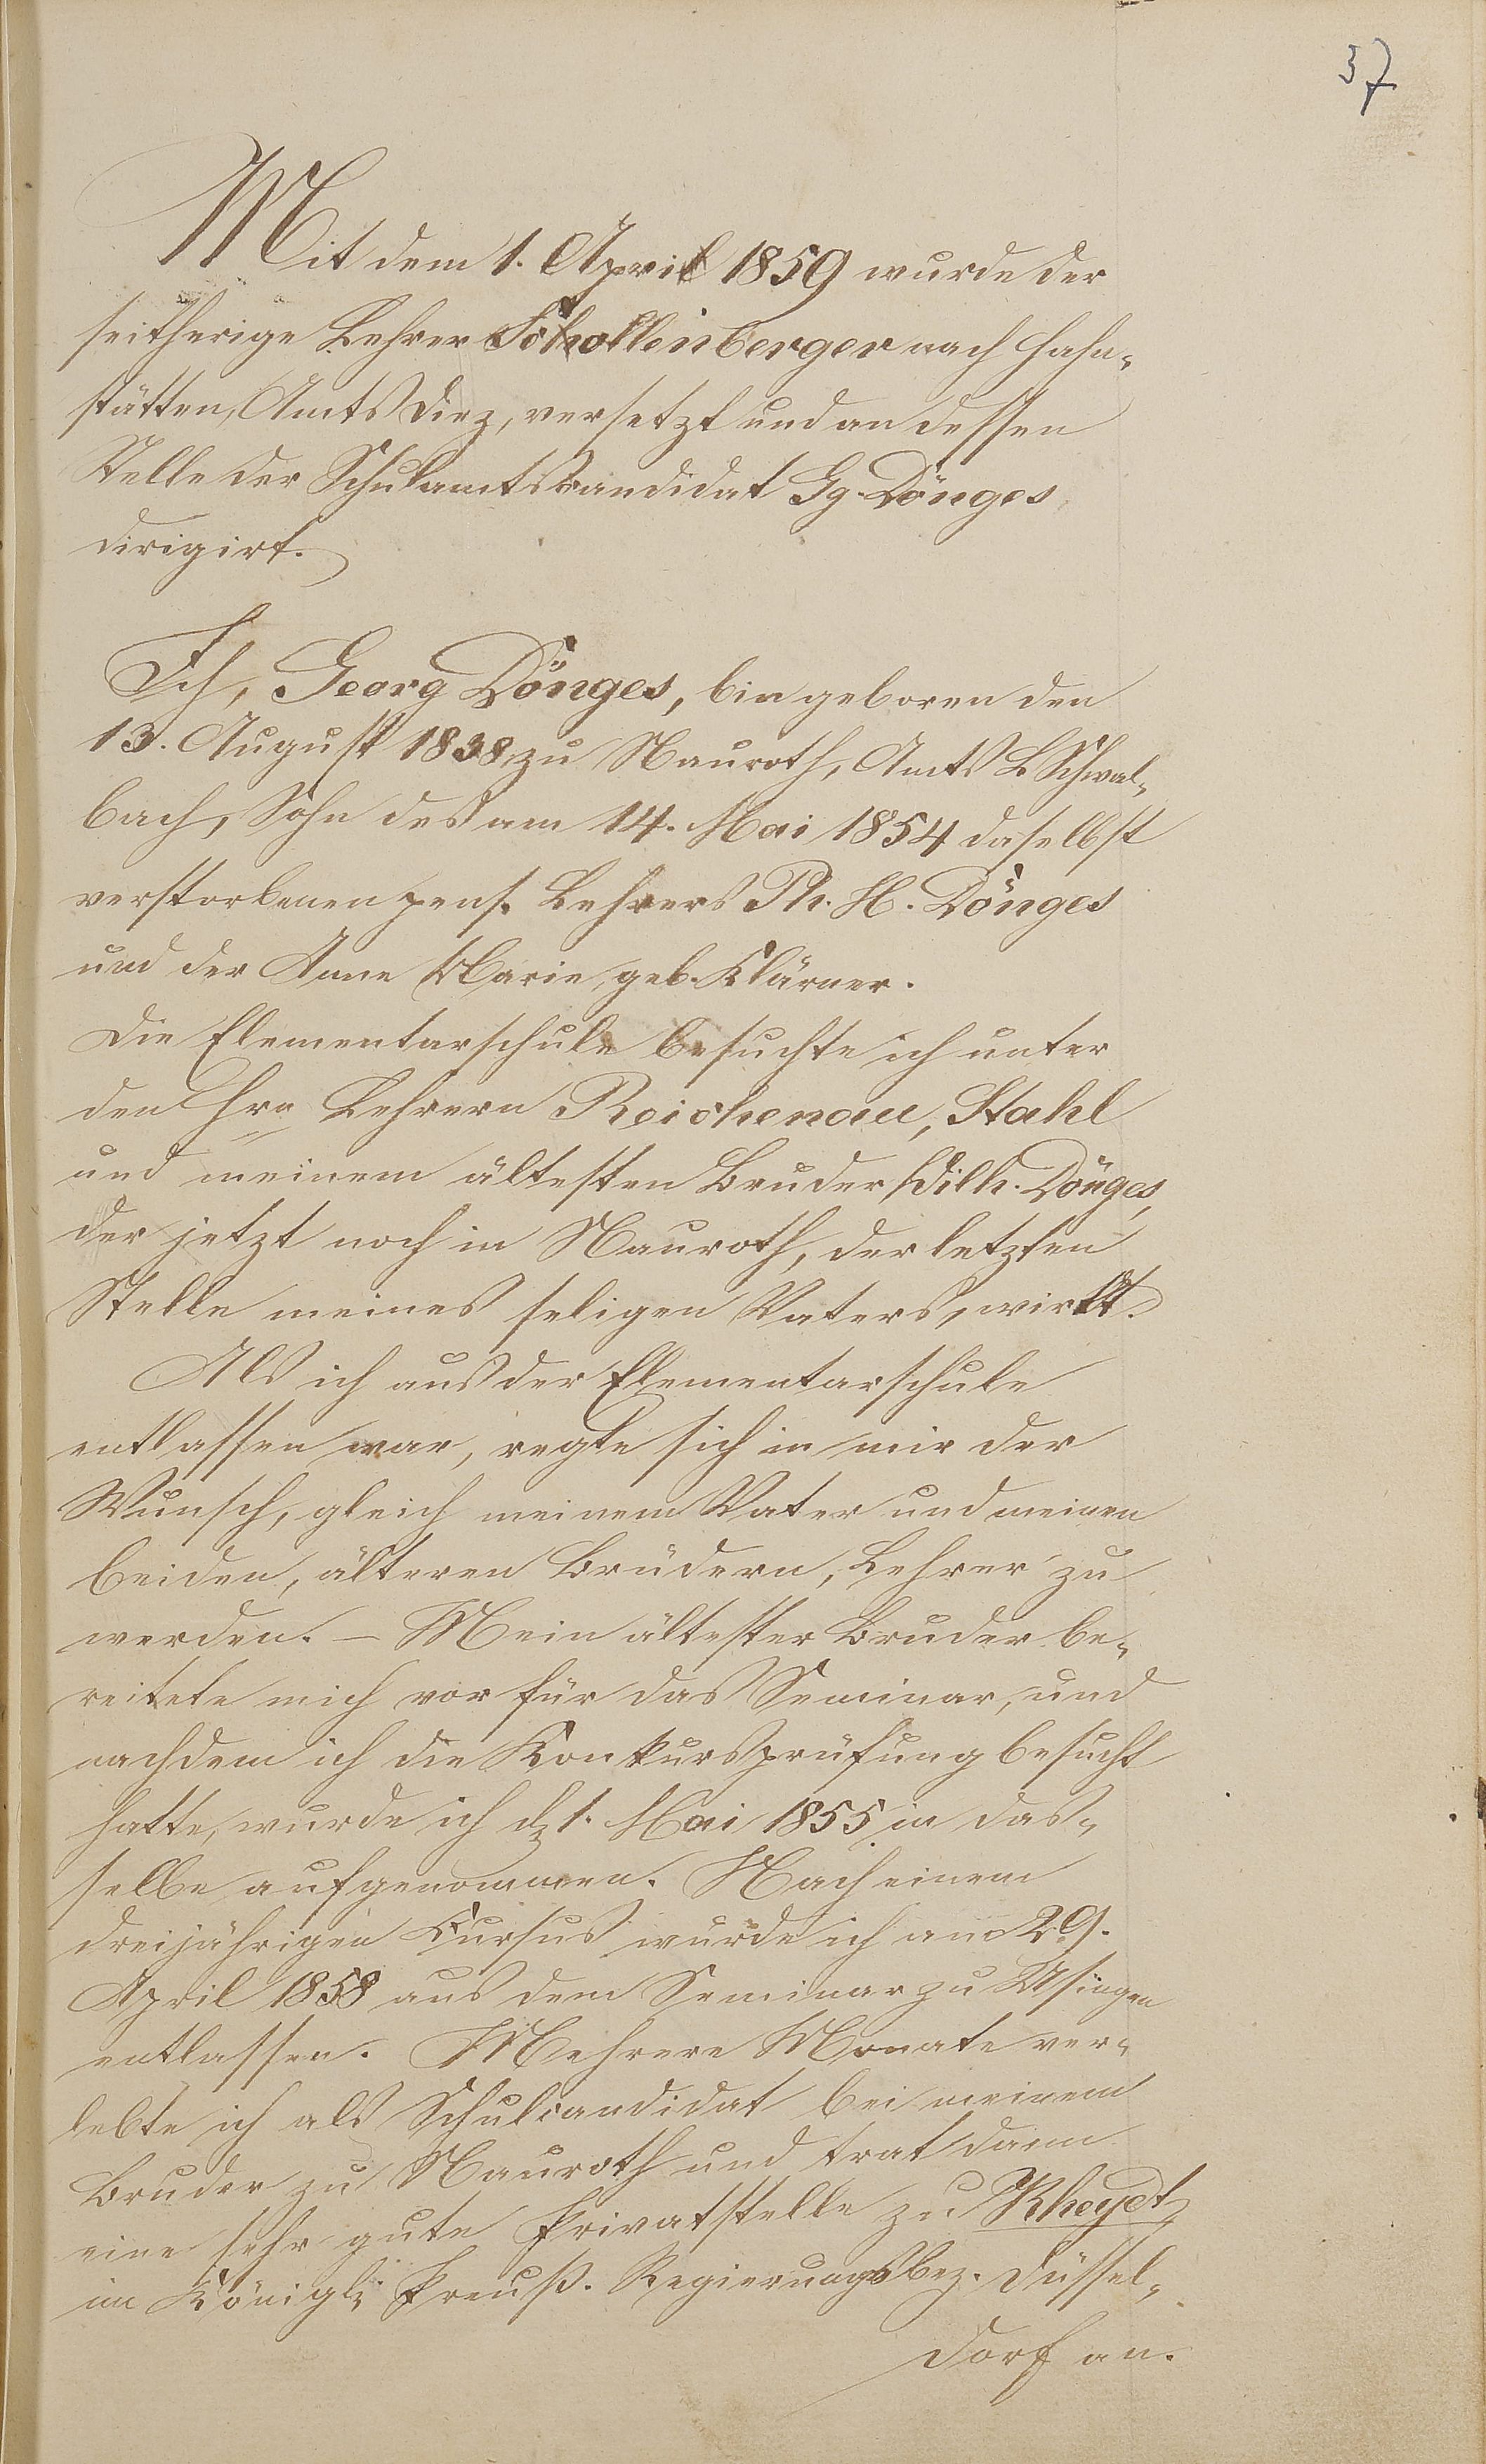 37
Mit dem 1. April 1859 wurde der
seitherige Lehrer Schollenberger nach Hahn-
stätten, Amts Diez, versetzt und an dessen
Stelle der Schulamtskandidat Gg. Dönges
dirigirt.
Ich, Georg Dönges, bin geboren den
13. August 1838 zu Nauroth, Amts L. Schwal-
bach, Sohn des am 14. Mai 1854 daselbst
verstorbenen pens. Lehrers Ph. H. Dönges
und der Anne Marie, geb. Klärner.
Die Elementarschule besuchte ich unter
den Hrn Lehrern Reichenau, Stahl
und meinem ältesten Bruder Wilh. Dönges,
der jetzt noch in Nauroth, der letzten
Stelle meines seligen Vaters, wirkt.
Als ich aus der Elementarschule
entlassen war, regte sich in mir der
Wunsch, gleich meinem Vater und meinen
beiden, älteren Brüdern, Lehrer zu
werden. – Mein ältester Bruder be-
reitete mich vor für das Seminar, und
nachdem ich die Konkursprüfung besucht
hatte, wurde ich d. 1. Mai 1855 in das-
selbe aufgenommen. Nach einem
dreijährigen Kursus wurde ich am 29.
April 1858 aus dem Seminar zu Usingen
entlassen. Mehrere Monate ver-
lebte ich als Schulcandidat bei meinem
Bruder zu Nauroth und trat dann
eine sehr gute Privatstelle zu Rheydt
im Königl. Preuß. Regierungsbez. Düssel-
dorf an.